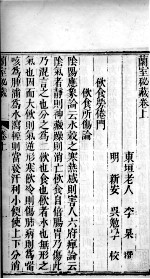 蘭室秘藏卷上
東垣老人 李杲 撰
明 新安 吳勉學 校
飲食勞倦門
飲食所傷論
陰陽應象論云水穀之寒熱感則害人六府痺論云
陰氣者靜則神藏躁則消亡飲食自倍腸胃乃傷此
乃混言之也分之為二飲也食也飲者水也無形之
氣也因而大飲則氣逆形寒飲冷則傷肺病則為喘
咳為腫滿為水瀉輕則當發汗利小便使上下分消
蘭室秘藏 卷上